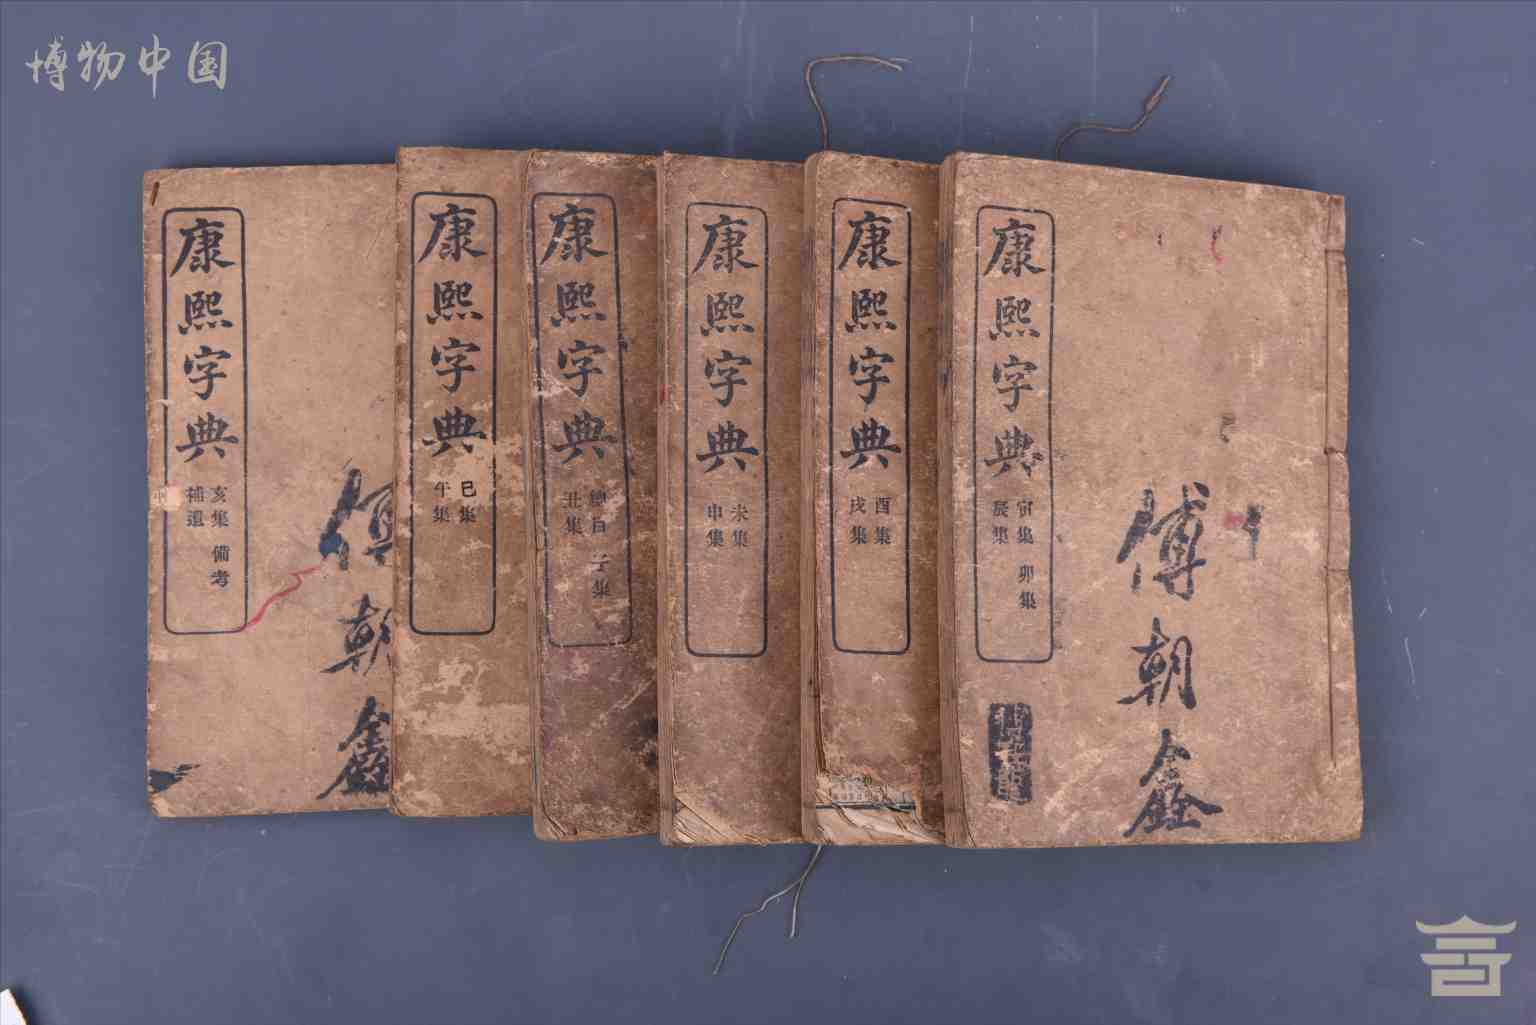 博物中国
康熙字典
亥集 備考
補遺
傅朝鑫
康熙字典
巳集
午集
康熙字典
總目 子集
丑集
康熙字典
未集
申集
康熙字典
酉集
戌集
康熙字典
寅集 卯集
辰集
傅朝鑫